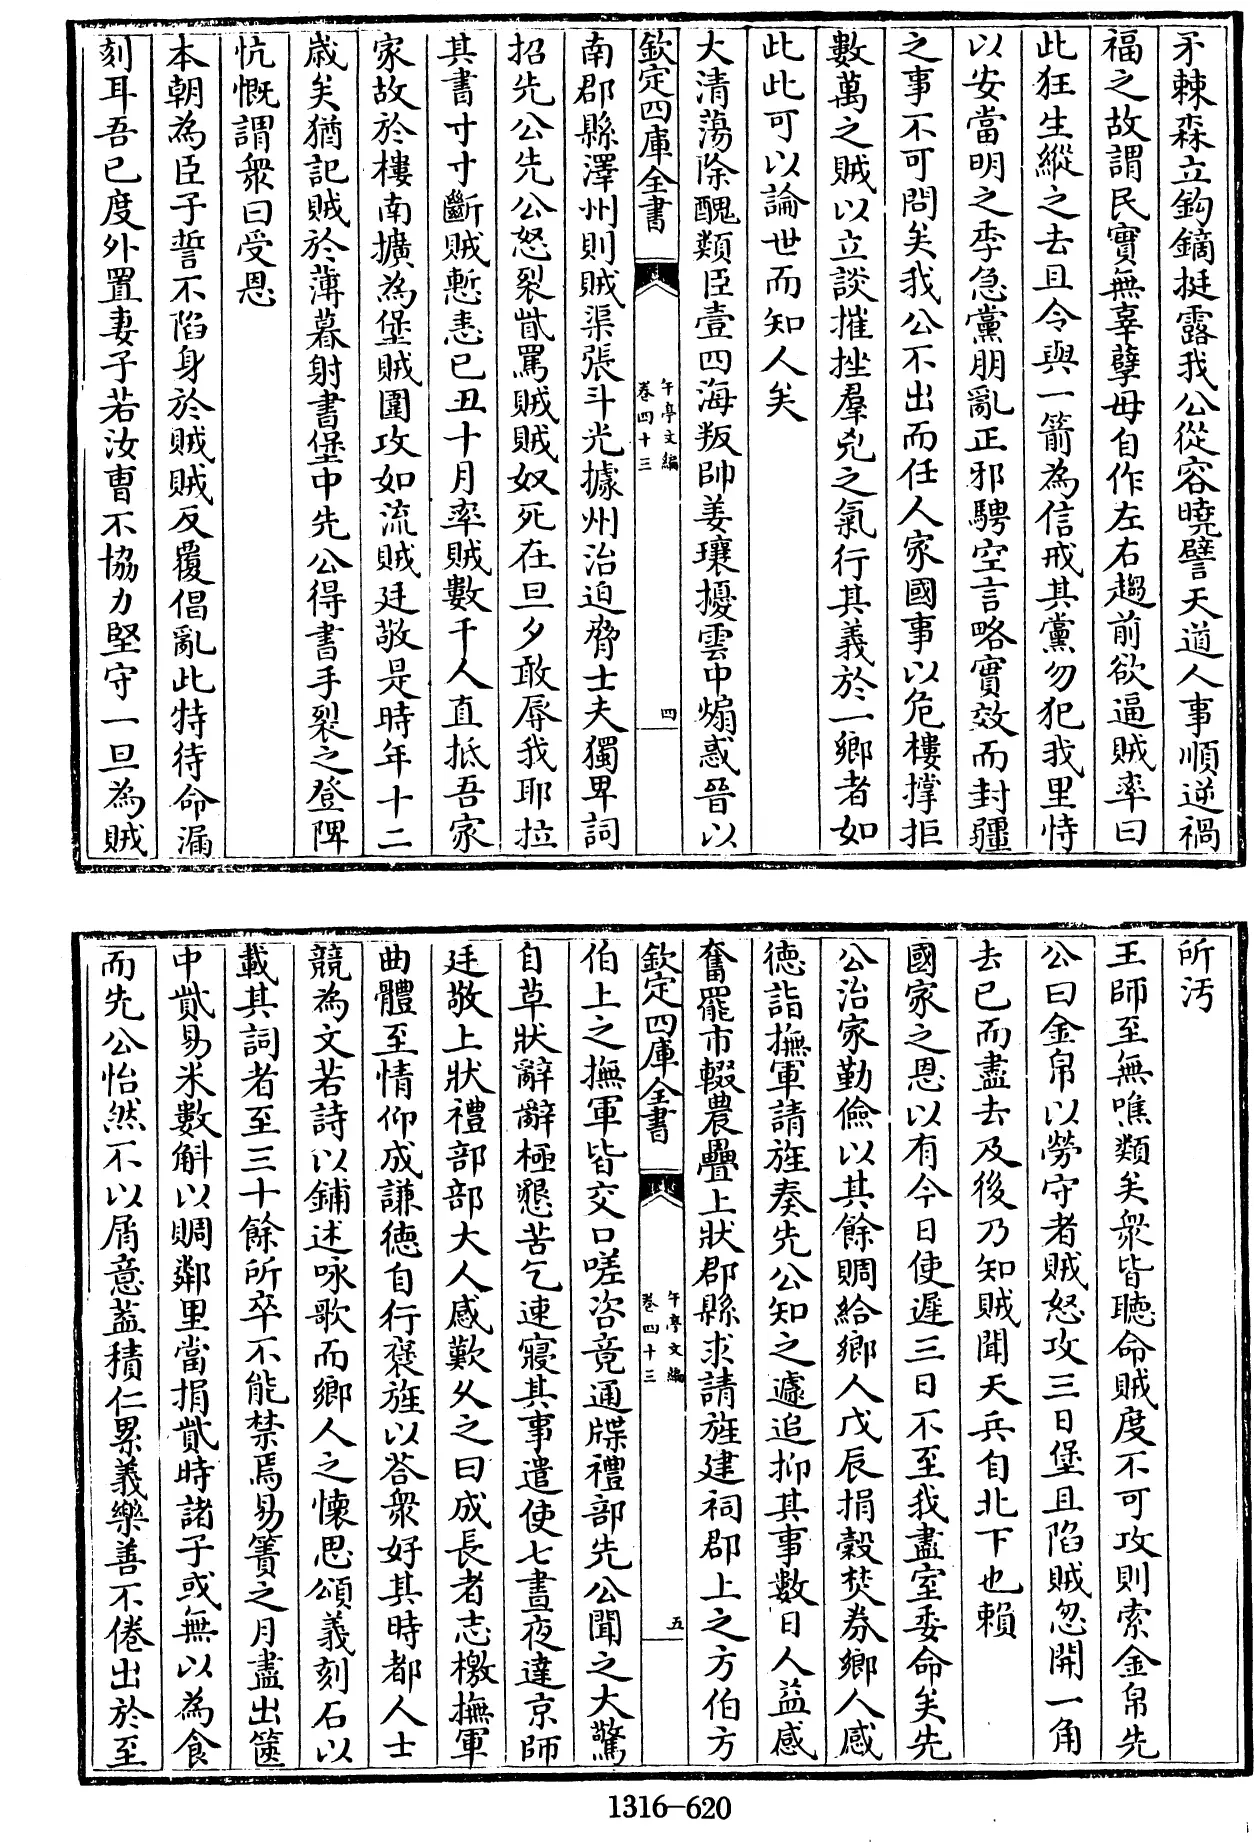 矛棘森立鈎鏑挺露我公從容曉譬天道人事順逆禍
福之故謂民實無辜孽毋自作左右趨前欲逼賊率曰
此狂生縱之去且令與一箭為信戒其黨勿犯我里恃
以安當明之季急黨朋亂正邪騁空言略實效而封疆
之事不可問矣我公不出而任人家國事以危樓撐拒
數萬之賊以立談摧挫羣兇之氣行其義於一鄉者如
此此可以論世而知人矣
大清蕩除醜類臣壹四海叛帥姜瓖擾雲中煽惑晉以
欽定四庫全書
午亭文編
卷四十三
四
南郡縣澤州則賊渠張斗光據州治迫脅士夫獨卑詞
招先公先公怒裂眥罵賊賊奴死在旦夕敢辱我耶拉
其書寸寸斷賊慙恚己丑十月率賊數千人直抵吾家
家故於樓南擴為堡賊圍攻如流賊廷敬是時年十二
歲矣猶記賊於薄暮射書堡中先公得書手裂之登陴
忼慨謂衆曰受恩
本朝為臣子誓不陷身於賊賊反覆倡亂此特待命漏
刻耳吾已度外置妻子若汝曹不協力堅守一旦為賊
所汚
王師至無噍類矣衆皆聽命賊度不可攻則索金帛先
公曰金帛以勞守者賊怒攻三日堡且陷賊忽開一角
去已而盡去及後乃知賊聞天兵自北下也賴
國家之恩以有今日使遲三日不至我盡室委命矣先
公治家勤儉以其餘賙給鄉人戊辰捐穀焚券鄉人感
德詣撫軍請旌奏先公知之遽追抑其事數日人益感
奮罷市輟農疊上狀郡縣求請旌建祠郡上之方伯方
欽定四庫全書
午亭文編
卷四十三
五
伯上之撫軍皆交口嗟咨竟通牒禮部先公聞之大驚
自草狀辭辭極懇苦乞速寢其事遣使七晝夜達京師
廷敬上狀禮部部大人感歎久之曰成長者志檄撫軍
曲體至情仰成謙德自行褒旌以荅衆好其時都人士
競為文若詩以鋪述咏歌而鄉人之懷思頌義刻石以
載其詞者至三十餘所卒不能禁焉易簀之月盡出篋
中貲易米數斛以賙鄰里當捐貲時諸子或無以為食
而先公怡然不以屑意葢積仁累義樂善不倦出於至
1316-620